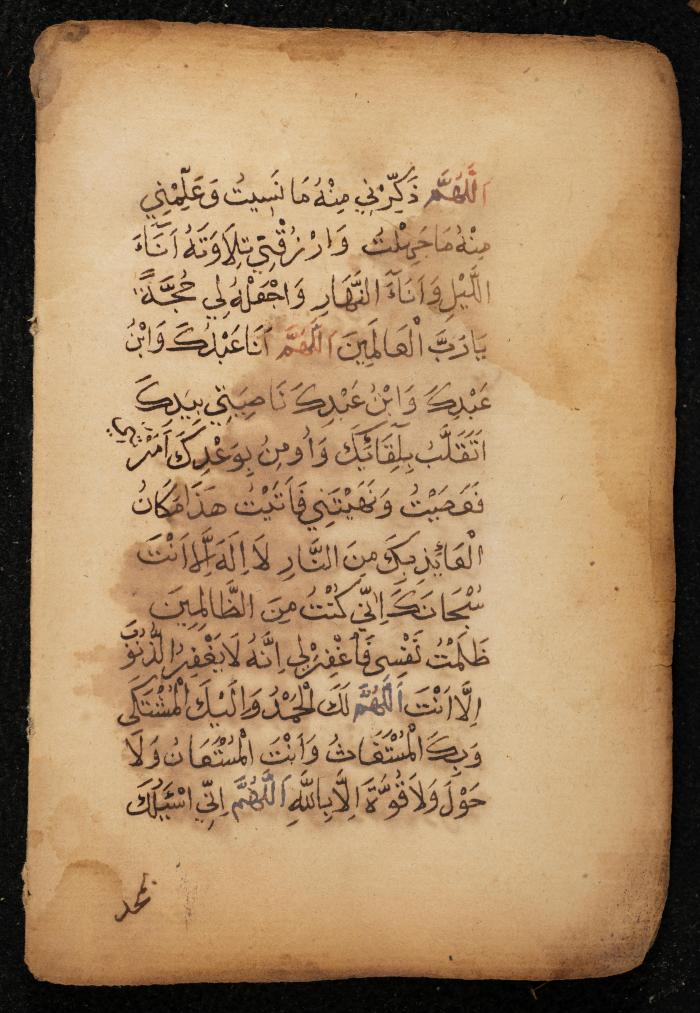 اَللّٰهُمَّ ذَكِّرْنِي مِنْهُ مَا نَسِيتُ وَعَلِّمْنِي
مِنْهُ مَا جَهِلْتُ وَارْزُقْنِي تِلَاوَتَهُ اٰنَآءَ
اللَّيْلِ وَاٰنَآءَ النَّهَارِ وَاجْعَلْهُ لِي حُجَّةً
يَارَبَّ الْعَالَمِينَ اَللّٰهُمَّ اَنَا عَبْدُكَ وَابْنُ
عَبْدِكَ وَابْنُ عَبْدِكَ نَاصِيَتِي بِيَدِكَ
اَتَقَلَّبُ بِلِقَائِكَ وَاُومِنُ بِوَعْدِكَ اَمَرْتَنِي
فَعَصَيْتُ وَنَهَيْتَنِي فَاَتَيْتُ هَذَا مَكَانُ
الْعَائِذِ بِكَ مِنَ النَّارِ لَا اِلَهَ اِلَّا اَنْتَ
سُبْحَانَكَ اِنِّي كُنْتُ مِنَ الظَّالِمِينَ
ظَلَمْتُ نَفْسِي فَاغْفِرْلِي اِنَّهُ لَا يَغْفِرُ الذُّنُوبَ
اِلَّا اَنْتَ اَللّٰهُمَّ لَكَ الْحَمْدُ وَاِلَيْكَ الْمُشْتَكَى
وَبِكَ الْمُسْتَغَاثُ وَاَنْتَ الْمُسْتَعَانُ وَلَا
حَوْلَ وَلَا قُوَّةَ اِلَّا بِاللَّهِ اَللّٰهُمَّ اِنِّي اَسْئَلُكَ